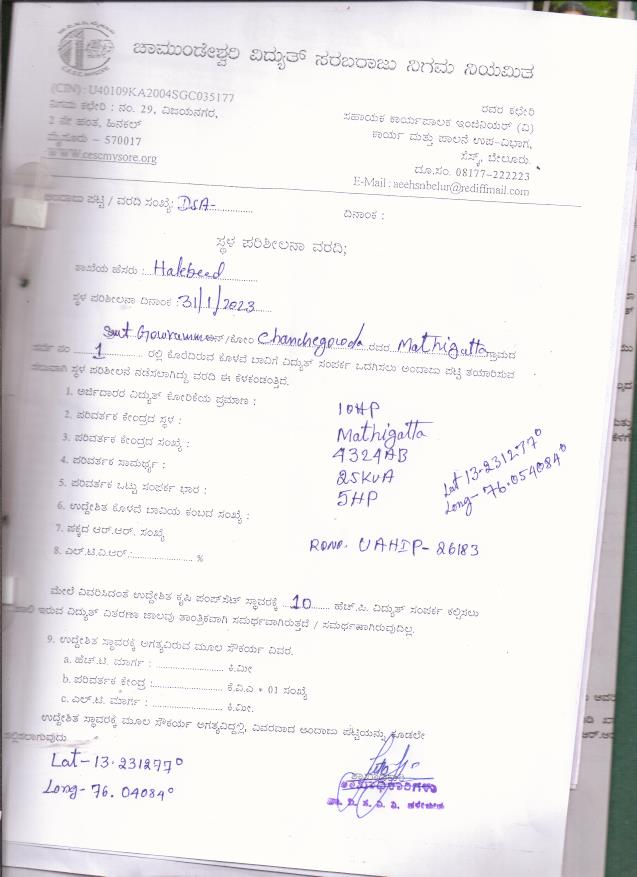 ಚಾಮುಂಡೇಶ್ವರಿ ವಿದ್ಯುತ್ ಸರಬರಾಜು ನಿಗಮ ನಿಯಮಿತ
(CIN) : U40109KA2004SGC035177
ನಿಗಮ ಕಛೇರಿ : ನಂ. 29, ವಿಜಯನಗರ,
2 ನೇ ಹಂತ, ಹಿನಕಲ್
ಮೈಸೂರು – 570017
www.cescmysore.org
ರವರ ಕಛೇರಿ
ಸಹಾಯಕ ಕಾರ್ಯಪಾಲಕ ಇಂಜಿನಿಯರ್ (ವಿ)
ಕಾರ್ಯ ಮತ್ತು ಪಾಲನೆ ಉಪ-ವಿಭಾಗ,
ಸೆಸ್ಕ್, ಬೇಲೂರು.
ದೂ.ಸಂ. 08177-222223
E-Mail : aeehsnbelur@rediffmail.com
ಅಂದಾಜು ಪಟ್ಟಿ / ವರದಿ ಸಂಖ್ಯೆ: DSA-
ದಿನಾಂಕ :
ಸ್ಥಳ ಪರಿಶೀಲನಾ ವರದಿ;
ಶಾಖೆಯ ಹೆಸರು : Halebeed
ಸ್ಥಳ ಪರಿಶೀಲನಾ ದಿನಾಂಕ : 31/1/2023
Smt Gowramma /ಕೋಂ Chanchegowda ರವರ Mathigatta ಗ್ರಾಮದ
ಸರ್ವೆ ನಂ 1 ರಲ್ಲಿ ಕೊರೆದಿರುವ ಕೊಳವೆ ಬಾವಿಗೆ ವಿದ್ಯುತ್ ಸಂಪರ್ಕ ಒದಗಿಸಲು ಅಂದಾಜು ಪಟ್ಟಿ ತಯಾರಿಸುವ
ಸಲುವಾಗಿ ಸ್ಥಳ ಪರಿಶೀಲನೆ ನಡೆಸಲಾಗಿದ್ದು ವರದಿ ಈ ಕೆಳಕಂಡಂತಿದೆ.
1. ಅರ್ಜಿದಾರರ ವಿದ್ಯುತ್ ಕೋರಿಕೆಯ ಪ್ರಮಾಣ : 10HP
2. ಪರಿವರ್ತಕ ಕೇಂದ್ರದ ಸ್ಥಳ : Mathigatta
3. ಪರಿವರ್ತಕ ಕೇಂದ್ರದ ಸಂಖ್ಯೆ : 4324AB
4. ಪರಿವರ್ತಕ ಸಾಮರ್ಥ್ಯ : 25KVA
5. ಪರಿವರ್ತಕ ಒಟ್ಟು ಸಂಪರ್ಕ ಭಾರ : 5HP
Lat 13.231277°
Long- 76.054084°
6. ಉದ್ದೇಶಿತ ಕೊಳವೆ ಬಾವಿಯ ಕಂಬದ ಸಂಖ್ಯೆ :
7. ಪಕ್ಕದ ಆರ್.ಆರ್. ಸಂಖ್ಯೆ RRNO. UAHIP- 26183
8. ಎಲ್.ಟಿ.ವಿ.ಆರ್.: %
ಮೇಲೆ ವಿವರಿಸಿದಂತೆ ಉದ್ದೇಶಿತ ಕೃಷಿ ಪಂಪ್‌ಸೆಟ್ ಸ್ಥಾವರಕ್ಕೆ 10 ಹೆಚ್.ಪಿ. ವಿದ್ಯುತ್ ಸಂಪರ್ಕ ಕಲ್ಪಿಸಲು
ಹಾಲಿ ಇರುವ ವಿದ್ಯುತ್ ವಿತರಣಾ ಜಾಲವು ತಾಂತ್ರಿಕವಾಗಿ ಸಮರ್ಥವಾಗಿರುತ್ತದೆ / ಸಮರ್ಥವಾಗಿರುವುದಿಲ್ಲ.
9. ಉದ್ದೇಶಿತ ಸ್ಥಾವರಕ್ಕೆ ಅಗತ್ಯವಿರುವ ಮೂಲ ಸೌಕರ್ಯ ವಿವರ.
a. ಹೆಚ್.ಟಿ. ಮಾರ್ಗ : ಕಿ.ಮೀ
b. ಪರಿವರ್ತಕ ಕೇಂದ್ರ : ಕೆ.ವಿ.ಎ * 01 ಸಂಖ್ಯೆ
c. ಎಲ್.ಟಿ. ಮಾರ್ಗ : ಕಿ.ಮೀ.
ಉದ್ದೇಶಿತ ಸ್ಥಾವರಕ್ಕೆ ಮೂಲ ಸೌಕರ್ಯ ಅಗತ್ಯವಿದ್ದಲ್ಲಿ, ವಿವರವಾದ ಅಂದಾಜು ಪಟ್ಟಿಯನ್ನು ಕೂಡಲೇ
ಸಲ್ಲಿಸಲಾಗುವುದು
Lat-13.231277°
Long- 76.04084°
ಶಾಖಾಧಿಕಾರಿಗಳು